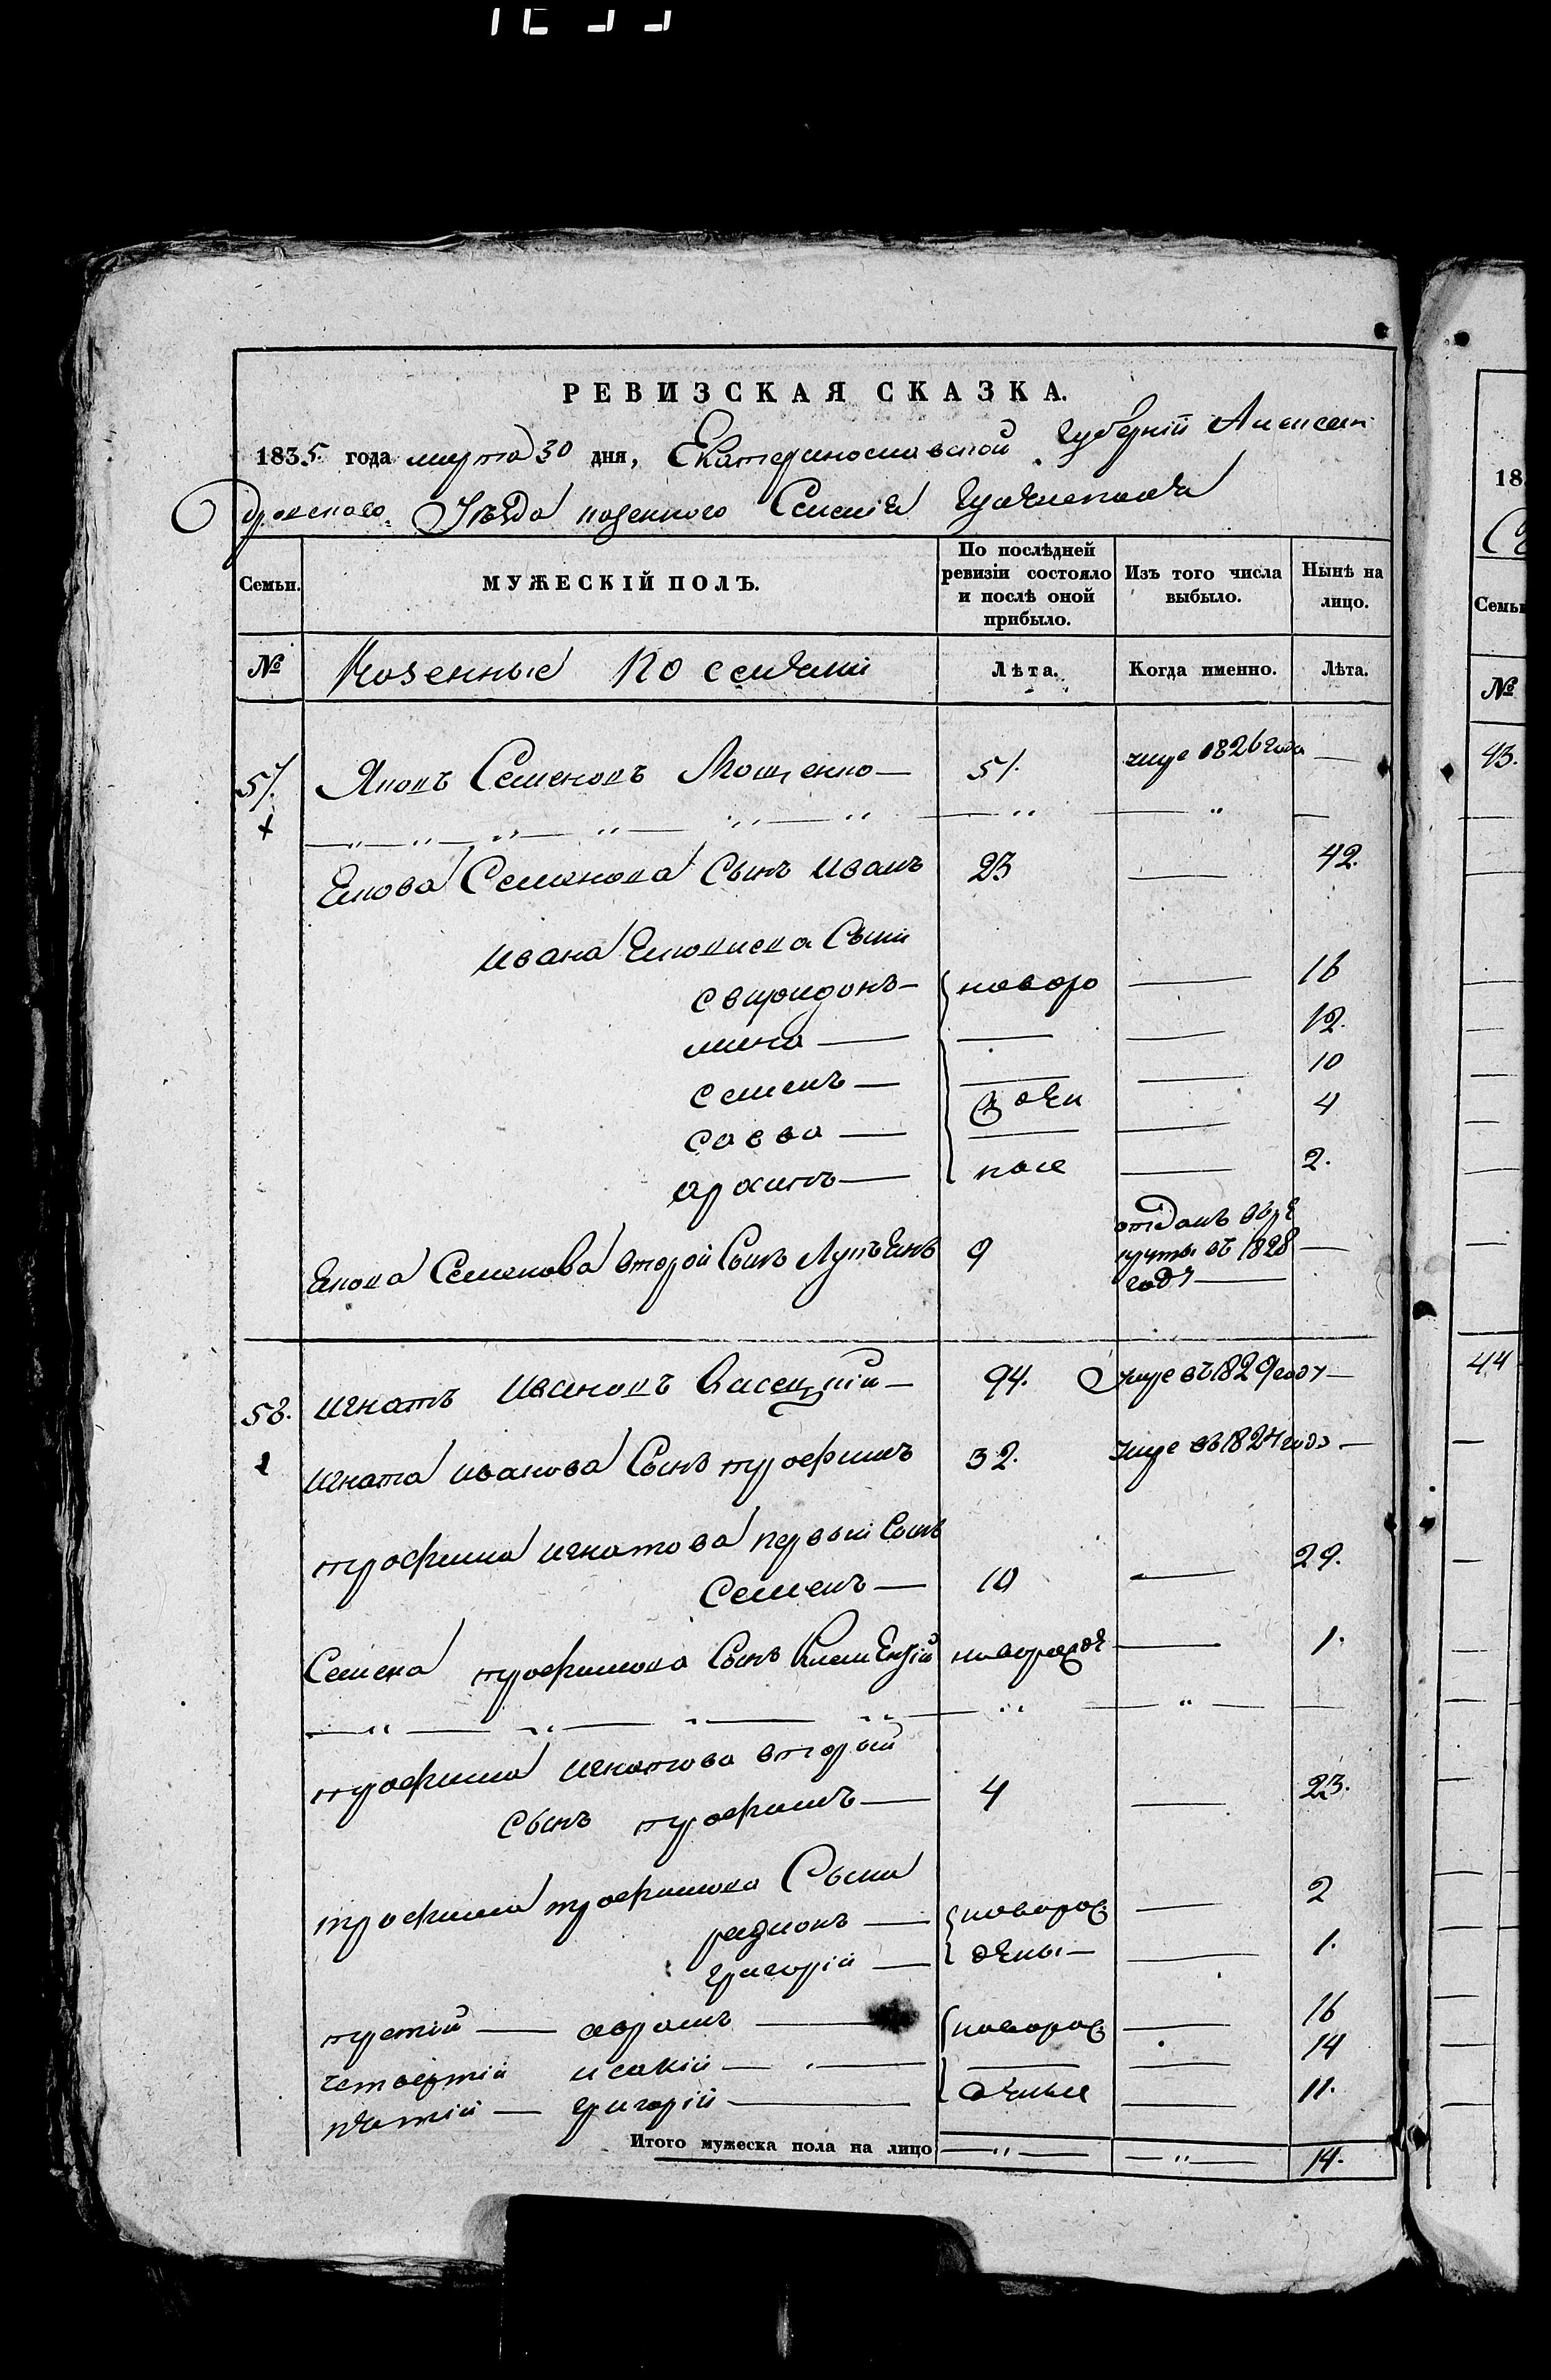 РЕВИЗСКАЯ СКАЗКА.
1835 года марта 30 дня, Екатеринославской Губерніи Алексан
дровского Уѣзда казенного Селенія
Семьи. МУЖЕСКІЙ ПОЛЪ. По послѣдней ревизіи состояло и послѣ оной прибыло. Изъ того числа выбыло. Нынѣ на лицо.
№ Козенные Поселяни Лѣта. Когда именно. Лѣта.
57. Яковъ Семеновъ Мощенко — 51. умре 1826 года —
Екова Семенова Сынъ иванъ 23 — 42.
ивана ЕкоВлева Сыни
свиридонъ — новоро — 16
мина — — — 12.
семенъ — — — 10
Ждени
савва — — — 4
архипъ — ные — 2.
Екова Семенова второй Сынъ Лупъянъ 9 отданъ вре
круты въ 1828 —
году —
58. игнатъ ивановъ Висецкій — 94. Умре въ 1829 году —
игната иванова Сынъ трофимъ 32. Умре въ 1824 году —
трофима игнатова первый Сынъ
Семенъ — 10 — 29.
Семена трофимова Сынъ Климентій новорожде — 1.
трофима игнатова вторый
сынъ трофимъ — 4 — 23.
трофима трофимова Сыни
радионъ — новорож — 2
григорій — дены — — 1.
третій — аврамъ — новорож — 16
четвертій исакій — — — 14
пятій — григорій — деные — 11.
Итого мужеска пола на лицо — — 14.
18
Семьи
№
43.
44